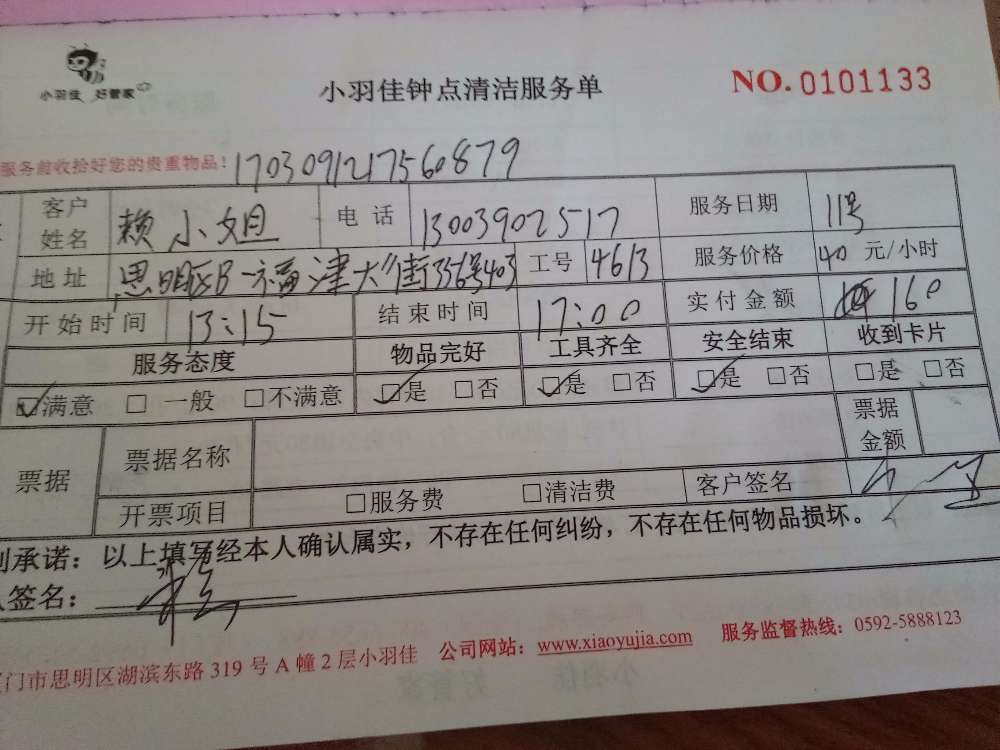 小羽佳 好管家
小羽佳钟点清洁服务单
NO.0101133
服务前收拾好您的贵重物品!
1703091217560879
客户姓名 赖小姐 电话 13003902517 服务日期 11号
地址 思明区B-福津大街356号403 工号 4613 服务价格 40 元/小时
开始时间 13:15 结束时间 17:00 实付金额 160
服务态度 物品完好 工具齐全 安全结束 收到卡片
☑满意 □一般 □不满意 ☑是 □否 ☑是 □否 ☑是 □否 □是 □否
票据 票据名称 票据金额
开票项目 □服务费 □清洁费 客户签名
承诺:以上填写经本人确认属实,不存在任何纠纷,不存在任何物品损坏。
签名:
门市思明区湖滨东路 319 号 A 幢 2 层小羽佳 公司网站:www.xiaoyujia.com 服务监督热线:0592-5888123